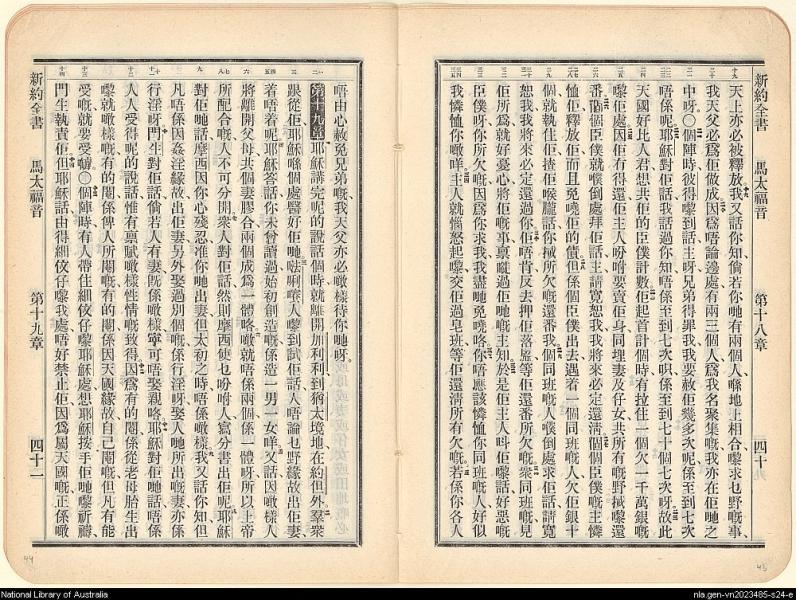 新約全書 馬太福音 第十八章 四十
天上亦必被釋放我又話你知倘若你哋有兩個人喺地上相合嚟求乜野嘅事
我天父必爲佢做成因爲唔論邊處有兩三個人爲我名聚集嘅我亦在佢哋之
中呀〇個陣時彼得嚟到話主呀兄弟得罪我我要赦佢幾多次呢係至到七次
唔係呢耶穌對佢話我話過你知唔係至到七次㖭係至到七十個七次呀故此
天國好比人君想共佢的臣僕計數佢起首計個時有拉住一個欠一千萬銀嘅
嚟佢處因佢冇得還佢主人吩咐要賣佢身同埋妻及仔女共所有嘅野嚟還
番個臣僕就倒處拜佢話主請寬恕我我將來必定還清個個臣僕嘅主憐
恤佢釋放佢而且免嘵佢的債但係個臣僕出去遇着一個同班嘅人欠佢銀十
個就執住佢揸佢喉嚨話你所欠嘅還番我個同班嘅人倒處求佢話請寬
恕我我將來必定還過你佢唔肯反去押佢落監等佢還番所欠嘅衆同班嘅見
佢所爲就好憂心將佢嘅事稟過佢哋嘅主知於是佢主人呌佢嚟話好惡嘅
臣僕呀你所欠嘅因爲你求我我盡哋免嘵咯你唔應該憐恤你同班嘅人好似
我憐恤你噉咩主人就惱怒起嚟交佢過皂班等佢還清所有欠嘅若係你各人
唔由心赦免兄弟嘅我天父亦必噉樣待你哋呀
第十九章 耶穌講完呢的說話個時就離開加利利到猶太境地在約但外羣衆
跟從佢耶穌喺個處醫好佢哋𠵽唎㘔人嚟到試佢話人唔論乜野緣故出佢妻
着唔着呢耶穌答話你未曾讀過始初創造嘅係造一男一女咩又話因噉樣人
將離開父母共個妻膠合兩個成爲一體咯噉就唔係兩個係一體呀所以上帝
所配合嘅人不可分開衆人對佢話然則摩西使乜吩咐人寫分書出佢呢耶穌
對佢哋話摩西因你心殘忍准你哋出妻但太初之時唔係噉樣我又話你知但
凡唔係因姦淫緣故出佢妻另外娶過別個嘅係行淫呀娶人哋所出嘅妻亦係
行淫呀門生對佢話倘若人有妻旣係噉樣寧可唔娶親咯耶穌對佢哋話唔係
人人受得呢的說話惟有禀賦噉樣性情嘅致得因爲有的閹係從老母胎生出
嚟就噉樣嘅有的閹係俾人所閹嘅有的閹係因天國緣故自己閹嘅但凡有能
受嘅就要受嚹〇個陣時有人帶住細蚊仔嚟耶穌處想耶穌按手佢哋嚟祈禱
門生執責佢但耶穌話由得細蚊仔嚟我處唔好禁止佢因爲屬天國嘅正係噉
新約全書 馬太福音 第十九章 四十一
44
45
National Library of Australia
nla.gen-vn2023485-s24-e